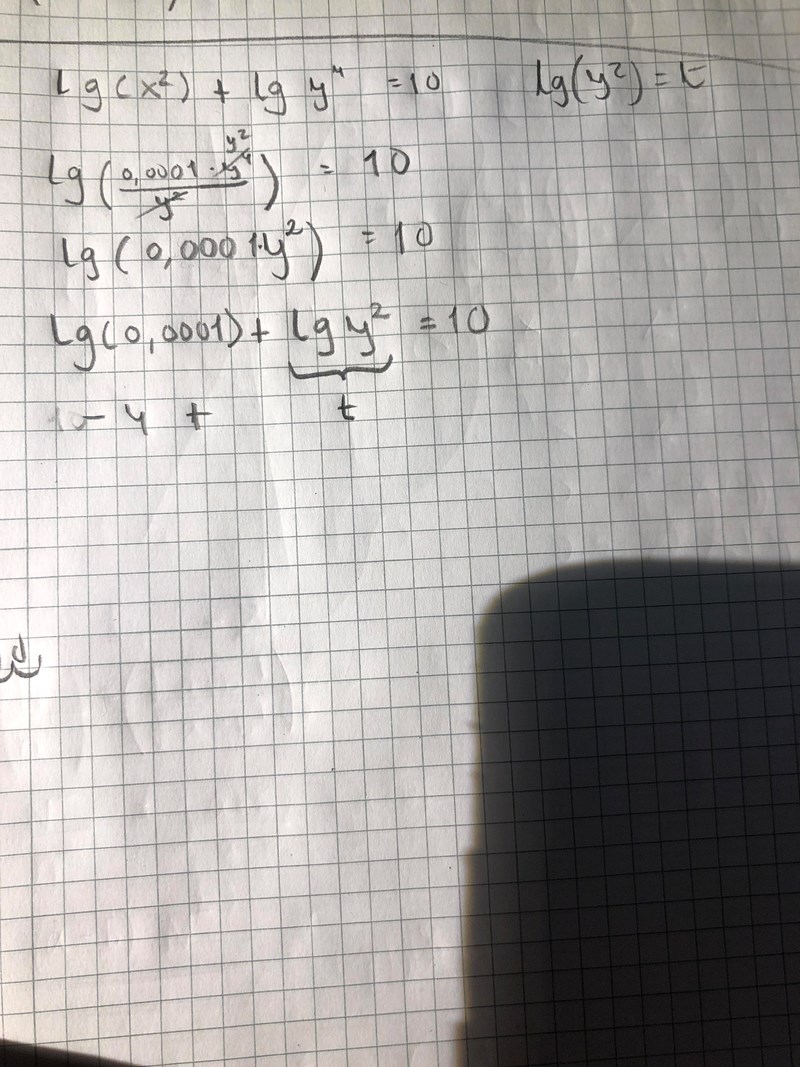 lg(x²) + lg y⁴ = 10 lg(y²) = t
lg(0,0001·y⁴/y²) = 10 y²
lg(0,0001·y²) = 10
lg(0,0001) + lg y² = 10
- 4 + t